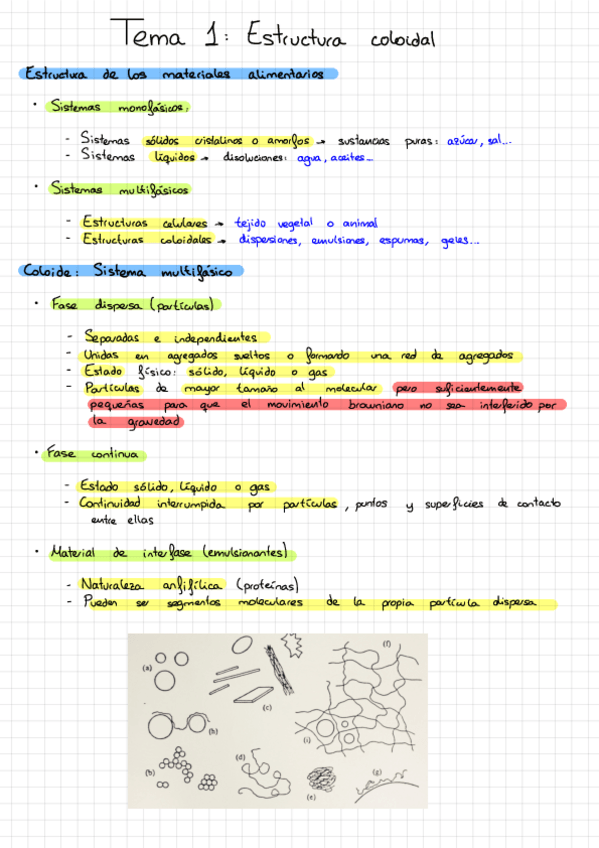 Tema 1: Estructura coloidal
Estructura de los materiales alimentarios
• Sistemas monofásicos:
- Sistemas sólidos cristalinos o amorfos → sustancias puras: azúcar, sal...
- Sistemas líquidos → disoluciones: agua, aceites...
• Sistemas multifásicos
- Estructuras celulares → tejido vegetal o animal
- Estructuras coloidales → dispersiones, emulsiones, espumas, geles...
Coloide: Sistema multifásico
• Fase dispersa (partículas)
- Separadas e independientes
- Unidas en agregados sueltos o formando una red de agregados
- Estado físico: sólido, líquido o gas
- Partículas de mayor tamaño al molecular pero suficientemente
pequeñas para que el movimiento browniano no sea interferido por
la gravedad
• Fase continua
- Estado sólido, líquido o gas
- Continuidad interrumpida por partículas, puntos y superficies de contacto
entre ellas
• Material de interfase (emulsionantes)
- Naturaleza anfifílica (proteínas)
- Pueden ser segmentos moleculares de la propia partícula dispersa
(a)
(c)
(f)
(h)
(i)
(b)
(d)
(e)
(g)